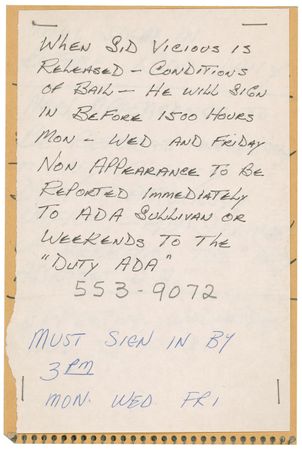 When Sid Vicious is
Released - Conditions
of Bail - He Will Sign
in Before 1500 Hours
Mon - Wed and Friday
Non Appearance To Be
Reported Immediately
To ADA Sullivan or
Weekends To The
"Duty ADA"
553-9072
Must Sign in By
3 PM
Mon. Wed Fri